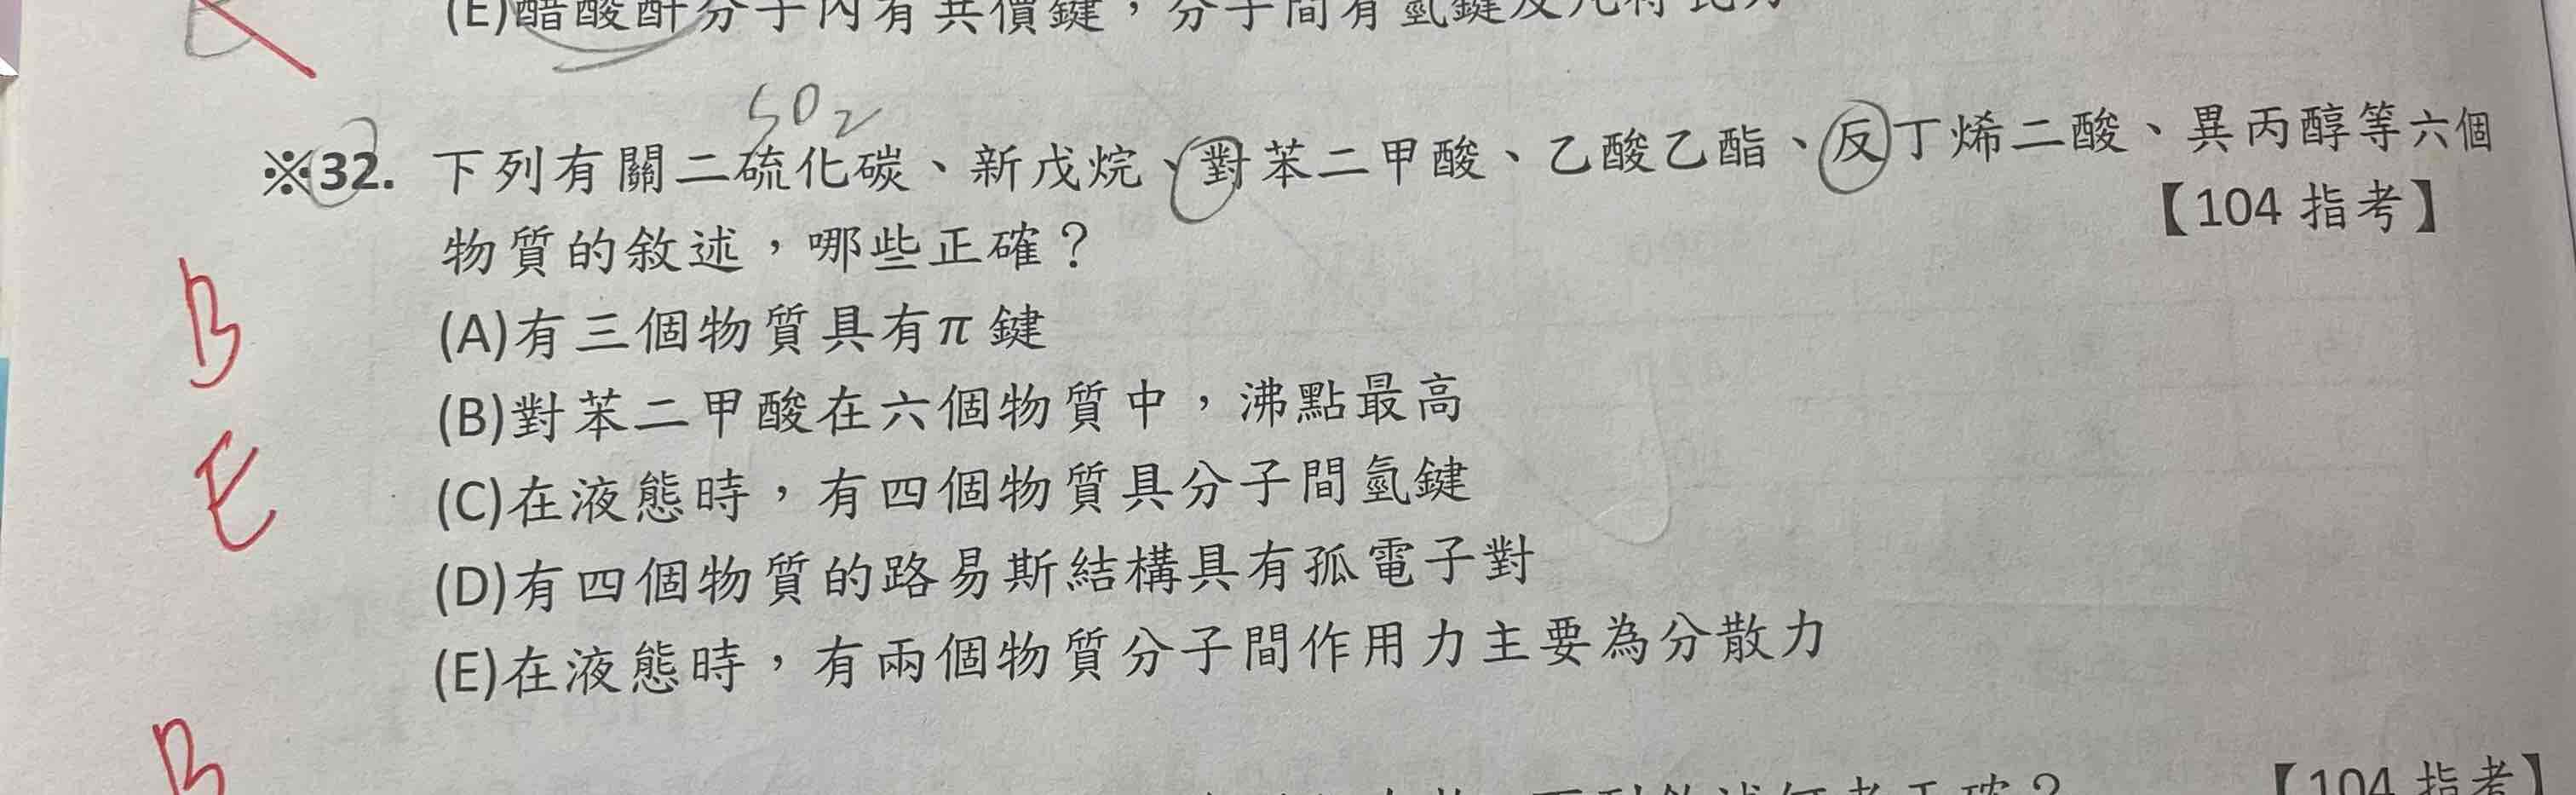 (E)醋酸酐分子內有共價鍵，分子間有氫鍵及凡得瓦力
SO₂
※32. 下列有關二硫化碳、新戊烷、對苯二甲酸、乙酸乙酯、反丁烯二酸、異丙醇等六個
物質的敘述，哪些正確？
【104 指考】
(A)有三個物質具有π鍵
B
(B)對苯二甲酸在六個物質中，沸點最高
(C)在液態時，有四個物質具分子間氫鍵
E
(D)有四個物質的路易斯結構具有孤電子對
(E)在液態時，有兩個物質分子間作用力主要為分散力
B
【104 指考】